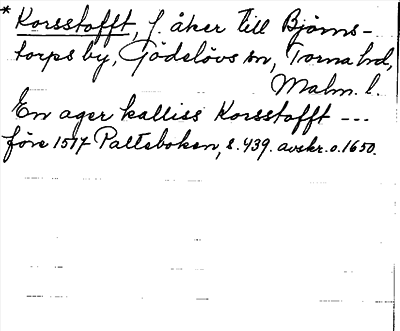 * Korsstofft, f. åker till Björns-
torps by, Gödelövs sn, Torna hd,
Malm. l.
En ager kalliss Korsstofft ---
före 1517 Palteboken, s. 439. avskr. o. 1650.